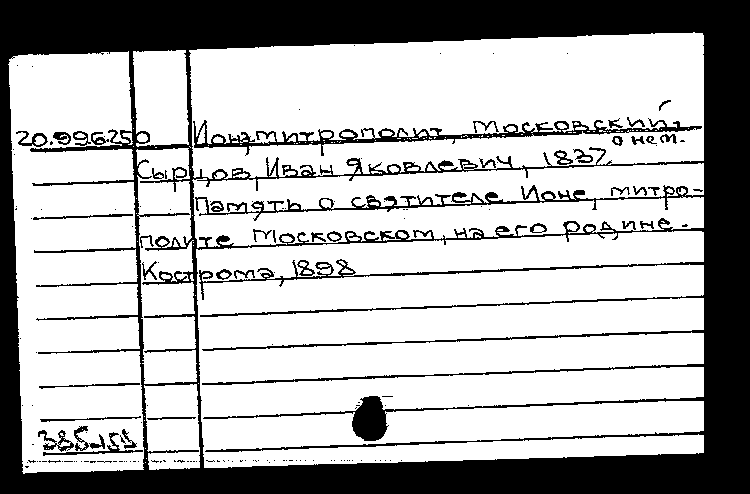 20.996.250 Иона, митрополит, московский,
о нем.
Сырцов, Иван Яковлевич, 1837.
Память о святителе Ионе, митро-
полите московском, на его родине.
Кострома, 1898